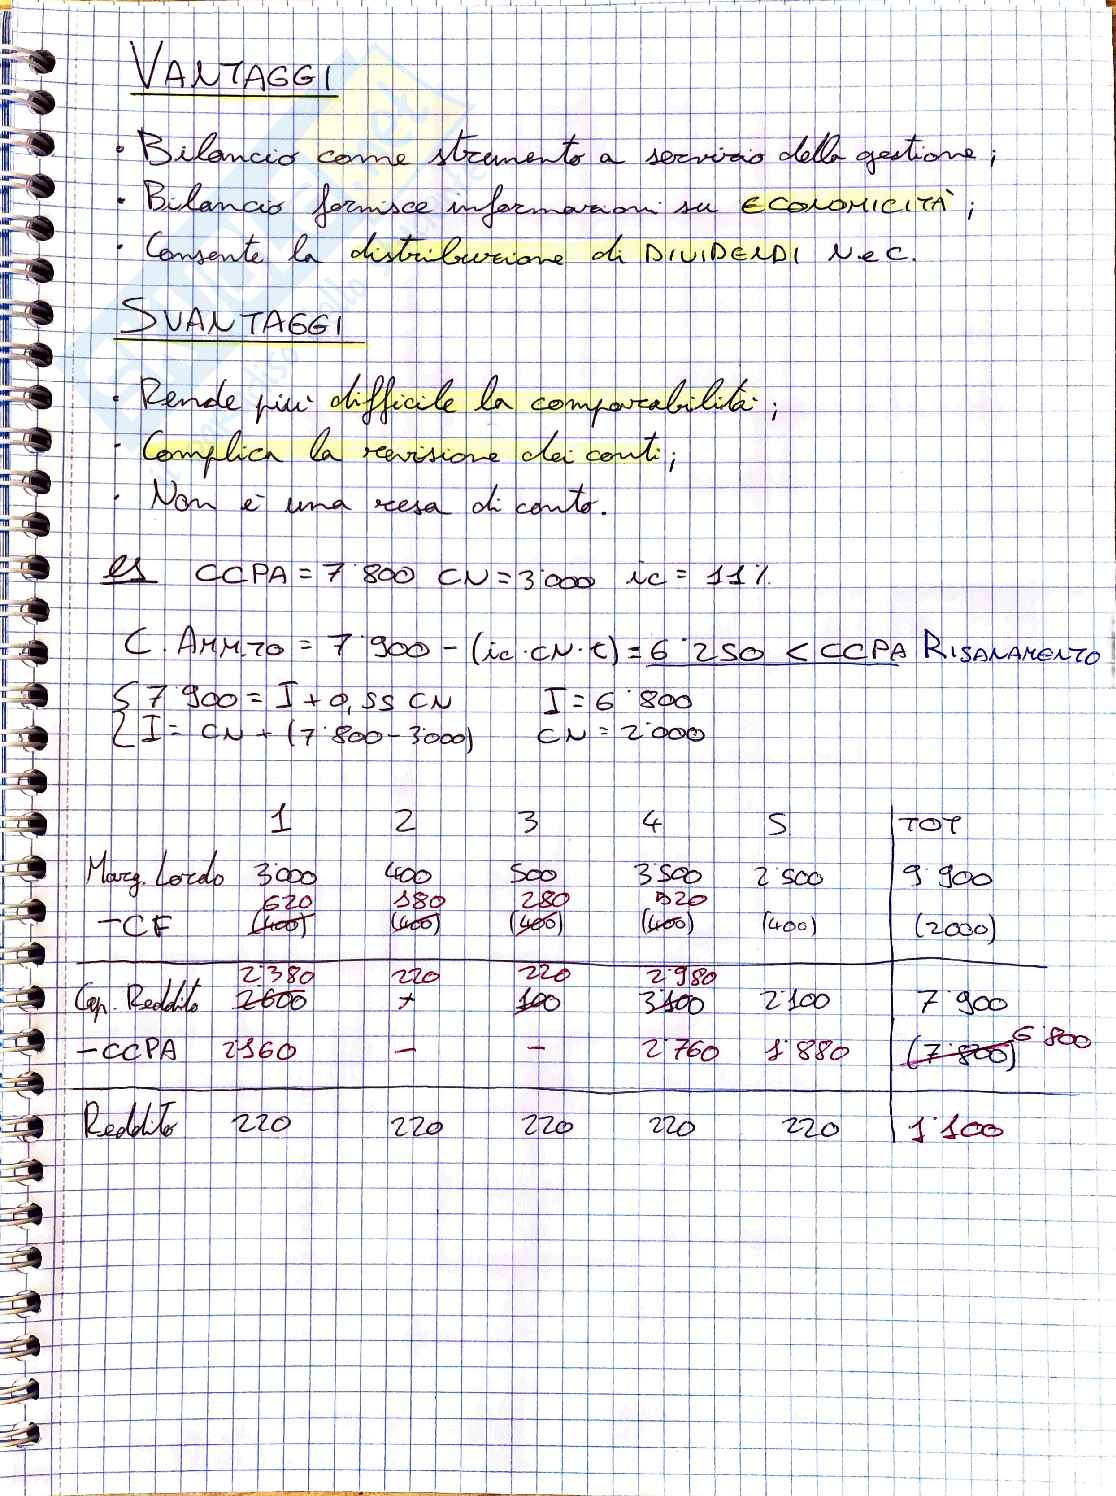 VANTAGGI
· Bilancio come strumento a servizio della gestione;
· Bilancio fornisce informazioni su ECONOMICITÀ;
· Consente la distribuzione di DIVIDENDI N e C.
SVANTAGGI
· Rende più difficile la comparabilità;
· Complica la revisione dei conti;
· Non è una resa di conto.
es CCPA = 7˙800 CN = 3˙000 ic = 11%
C. AMM.TO = 7˙900 - (ic·CN·t) = 6˙250 < CCPA RISANAMENTO
{ 7˙900 = I + 0,55 CN I = 6˙800
{ I = CN + (7˙800 - 3˙000) CN = 2˙000
1 2 3 4 5 TOT
Marg. Lordo 3˙000 400 500 3˙500 2˙500 9˙900
620 180 280 520
- CF (400) (400) (400) (400) (400) (2000)
2˙380 220 220 2˙980
Cap. Reddito 2˙600 100 3˙100 2˙100 7˙900
- CCPA 2˙160 - - 2˙760 1˙880 (7˙800) 6˙800
Reddito 220 220 220 220 220 1˙100